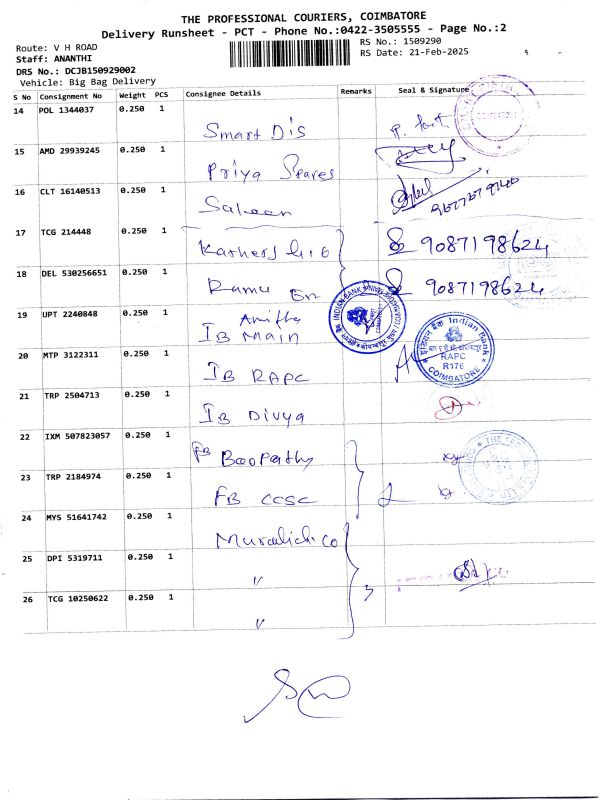 THE PROFESSIONAL COURIERS, COIMBATORE
Delivery Runsheet - PCT - Phone No.:0422-3505555 - Page No.:2
Route: V H ROAD
RS No.: 1509290
Staff: ANANTHI
RS Date: 21-Feb-2025
DRS No.: DCJB150929002
Vehicle: Big Bag Delivery
S No Consignment No Weight PCS Consignee Details Remarks Seal & Signature
14 POL 1344037 0.250 1
Smart Dis
15 AMD 29939245 0.250 1
Priya Spares
16 CLT 16140513 0.250 1
Saleem
17 TCG 214448 0.250 1
9087198624
18 DEL 530256651 0.250 1
Ramu En 9087198624
19 UPT 2240848 0.250 1
IB Main
20 MTP 3122311 0.250 1
IB RAPC
Indian Bank
RAPC
R176
COIMBATORE
21 TRP 2504713 0.250 1
IB Divya
22 IXM 507823057 0.250 1
FB Boopathy
23 TRP 2184974 0.250 1
FB CCSC
24 MYS 51641742 0.250 1
25 DPI 5319711 0.250 1
"
26 TCG 10250622 0.250 1
"